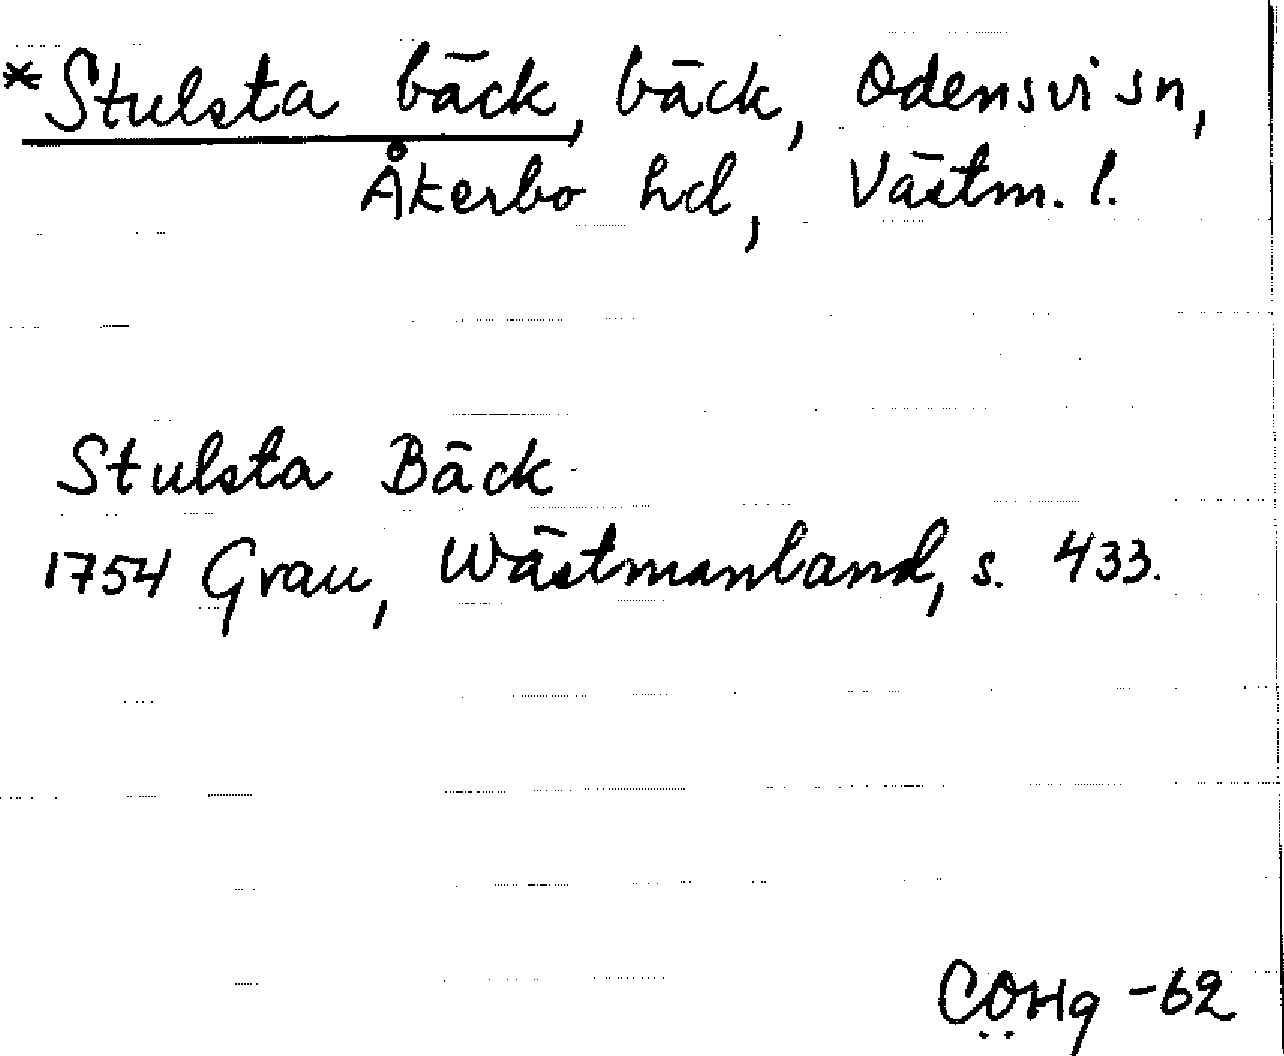 *Stulsta bäck, bäck, Odensvi sn,
Åkerbo hd, Västm. l.
Stulsta Bäck
1754 Grau, Wästmanland, s. 433.
CÖHg -62